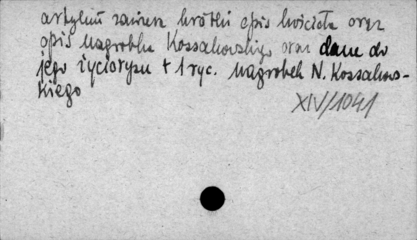 artykuł zawiera krótki opis kościoła oraz
opis nagrobka Kossakowskiego oraz dane do
jego życiorysu + 1 ryc. nagrobek N. Kossakow-
skiego
XIV/1041